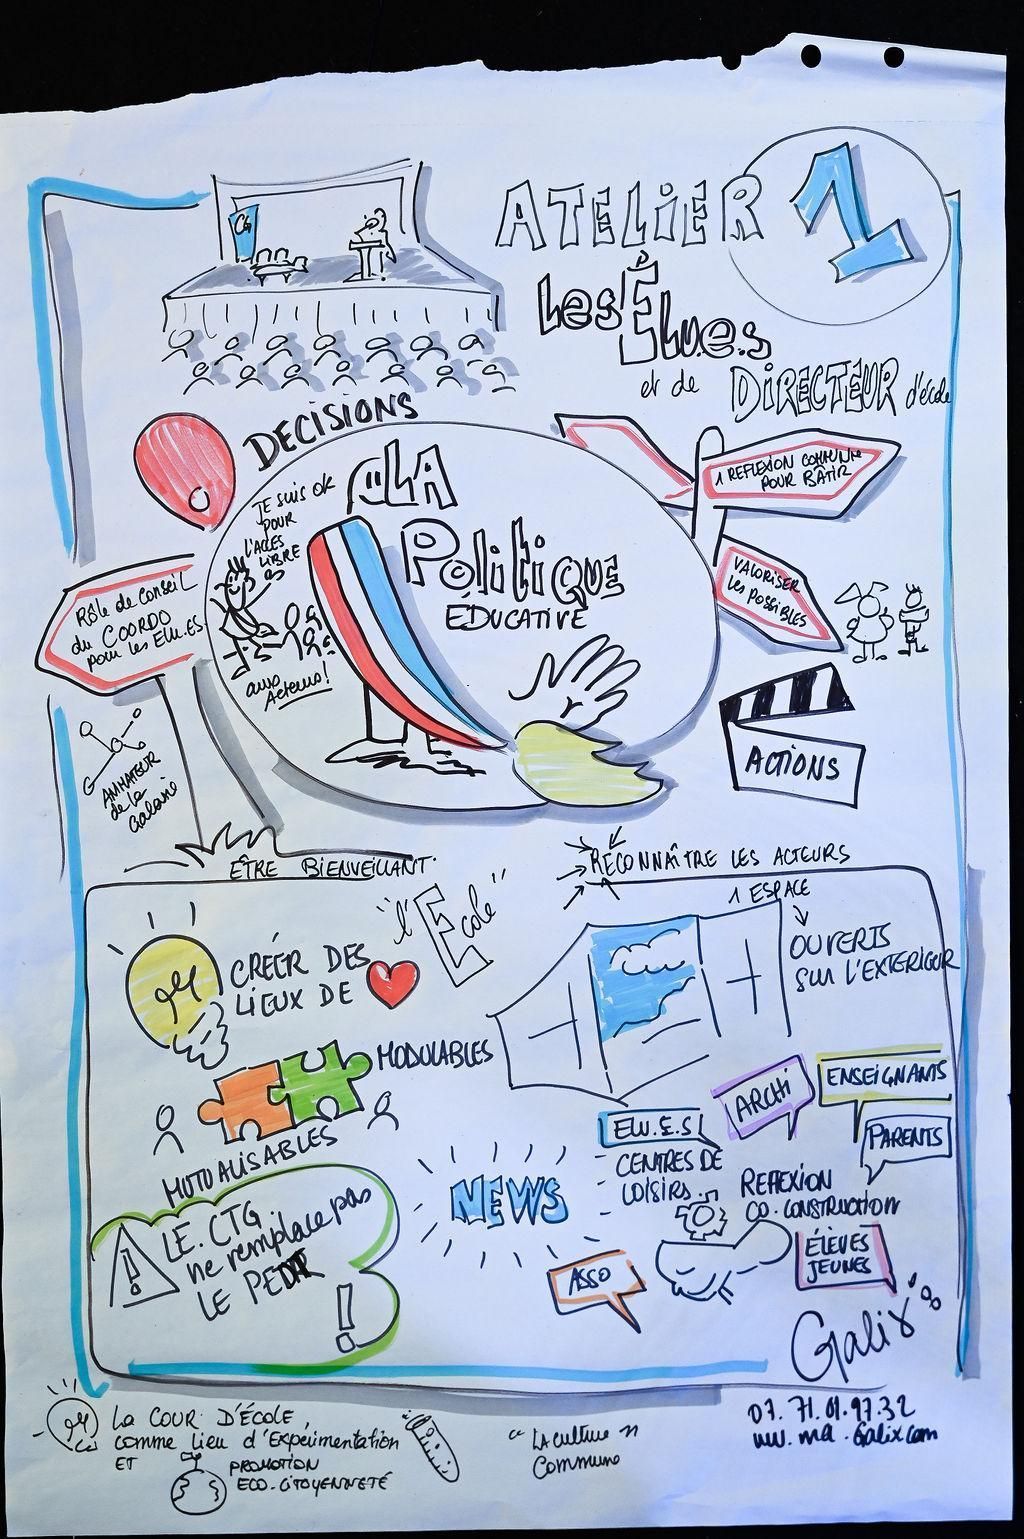 CG
ATELIER 1
Les Élu.e.s
et de DIRECTEUR d'école
DECISIONS
LA
Politique
EDUCATIVE
JE suis ok
POUR
l'ACCES
LIBRE
Acteurs!
1 REFLEXION COMMUNE
POUR BÂTIR
VALORISER
les possibles
Rôle de conseil
du COORDO
pour les Elu.es
de la
Galaxie
ACTIONS
ÊTRE BIENVEILLANT.
RECONNAÎTRE LES ACTEURS
"l'École"
1 ESPACE
OUVERTS
SUR L'EXTERIEUR
CRÉER DES
LIEUX DE
MODULABLES
MUTUALISABLES
ARCHI
ENSEIGNANTS
ELU.E.S
PARENTS
CENTRES DE
LOISIRS.
REFLEXION
CO-CONSTRUCTION
NEWS
LE. CTG
ne remplace pas
LE PEDT
!
ÉLEVES
JEUNES
ASSO
Galix
LA COUR D'ÉCOLE,
comme lieu d'Expérimentation
ET PROMOTION
ECO-CITOYENNETÉ
"LA culture"
Commune
07.71.01.97.32
www.ma-Galix.com